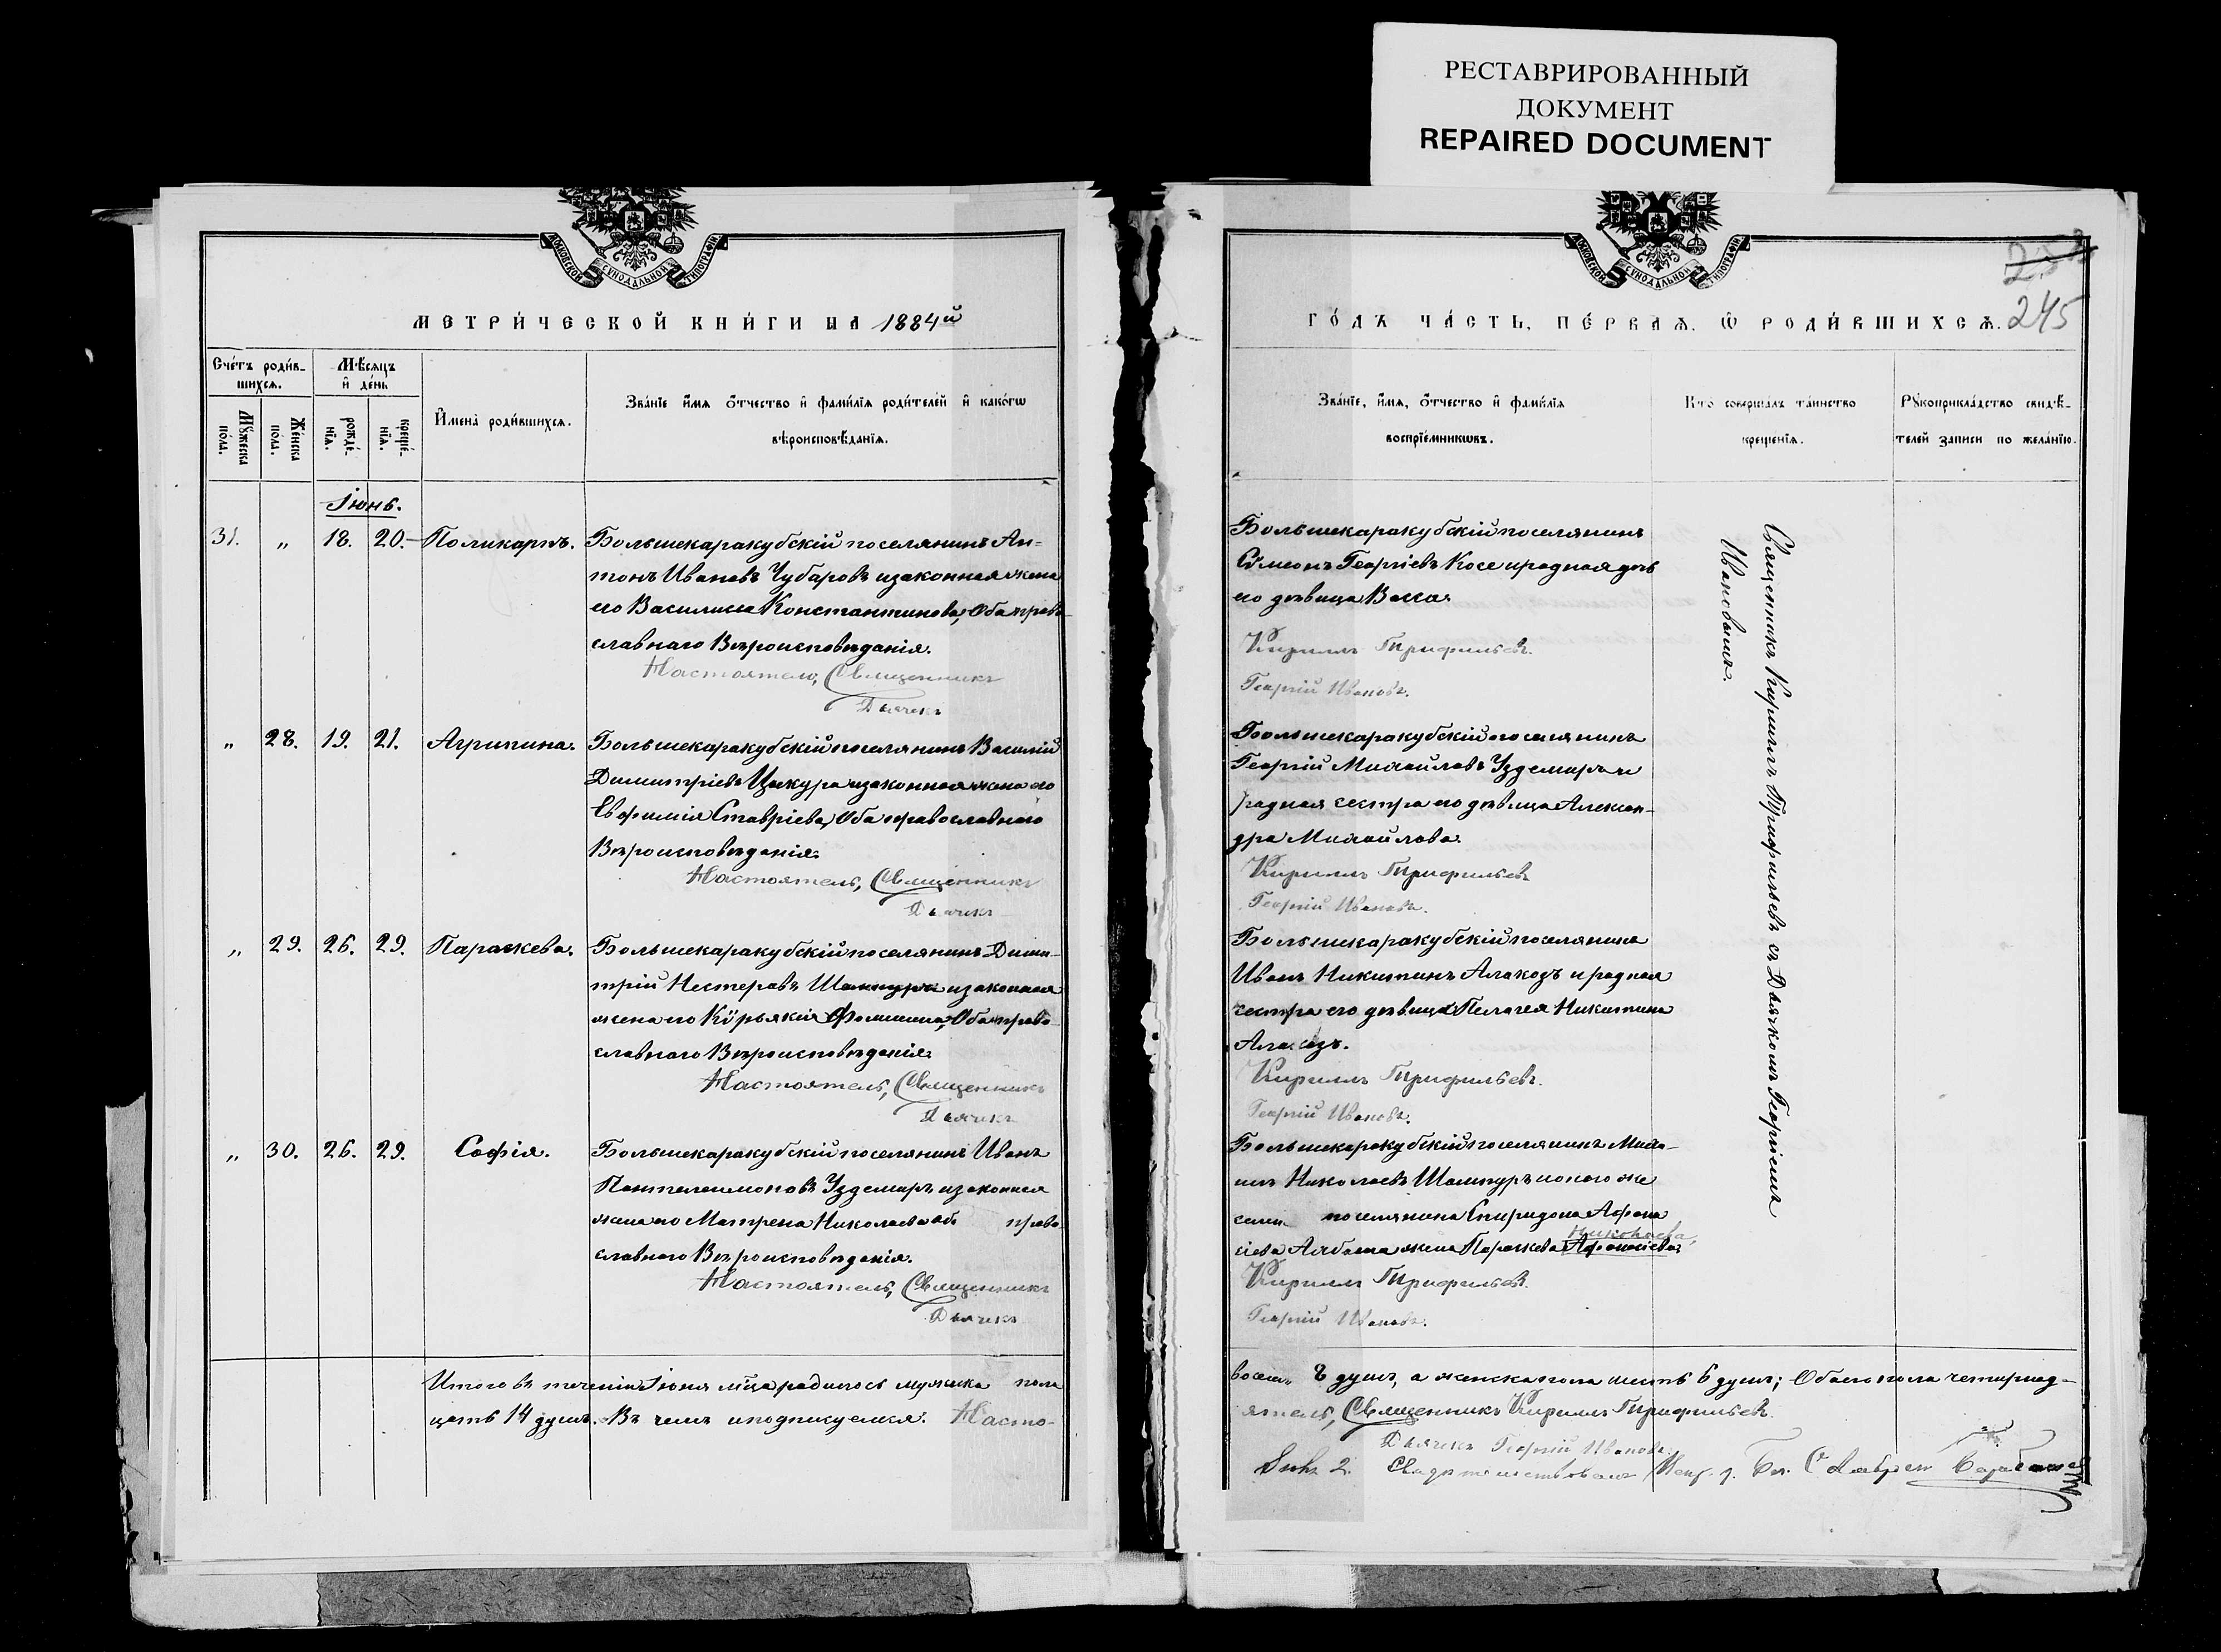 РЕСТАВРИРОВАННЫЙ
ДОКУМЕНТ
REPAIRED DOCUMENT
МОСКОВСКОЙ СѴНОДАЛЬНОЙ ТИПОГРАФІИ
МЕТРИ́ЧЕСКОЙ КНИ́ГИ НА 1884й
Сче́тъ роди́в-
шихсѧ.
Мѣсяцъ
и҆ де́нь
Мꙋ́жеска
по́ла.
Же́нска
по́ла.
рожде́-
нїѧ.
креще́-
нїѧ.
И҆мена̀ роди́вшихсѧ.
Зва́нїе и҆́мѧ ѻ҆́тчество и҆ фами́лїѧ роди́телей и҆ како́гѡ
вѣроисповѣ́данїѧ.
Іюнь.
31. „ 18. 20. Поликарпъ. Большекаракубскій поселянинъ Ан-
тонъ Ивановъ Чубаровъ и законная жена
его Василиса Константинова, Оба право-
славнаго Вѣроисповѣданія.
Настоятель, Священникъ
Дьячекъ
„ 28. 19. 21. Агрипина. Большекаракубскій поселянинъ Василій
Димитріевъ Цакура и законная жена его
Евфимія Ставріева, Оба православнаго
Вѣроисповѣданія.
Настоятель, Священникъ
Дьячекъ
„ 29. 26. 29. Параскева. Большекаракубскій поселянинъ Дими-
трій Нестеровъ и законная
жена его Кѵрьякія Фомина, Оба право-
славнаго Вѣроисповѣданія.
Настоятель, Священникъ
Дьячекъ
„ 30. 26. 29. Софія. Большекаракубскій поселянинъ Иванъ
Пантелеимоновъ Уздемиръ и законная
жена его Матрена Николаева об право-
славнаго Вѣроисповѣданія.
Настоятель, Священникъ
Дьячекъ
Итого въ теченіи Іюня м̃ца родилось мужска пола
цать 14 душъ. Въ чемъ и подписуемся. Насто-
МОСКОВСКОЙ СѴНОДАЛЬНОЙ ТИПОГРАФІИ
245
ГО́ДЪ ЧА́СТЬ, ПЕ́РВАѦ. Ѡ҆ РОДИ́ВШИХСѦ.
Зва́нїе, и҆́мѧ, ѻ҆́тчество и҆ фами́лїѧ
воспрїе́мникѡвъ.
Кто̀ соверша́лъ та́инство
креще́нїѧ.
Рꙋкоприкла́дство свидѣ́-
телей записи по жела́нїю.
Большекаракубскій поселянинъ
Сѵмеонъ Георгіевъ Косе и родная дочь
его дѣвица Васса.
Кириллъ Трифильевъ.
Георгій Ивановъ.
Большекаракубскій поселянинъ
Георгій Михайловъ Уздемиръ и
родная сестра его дѣвица Алексан-
дра Михайлова.
Кириллъ Трифильевъ
Георгій Ивановъ.
Большекаракубскій поселянинъ
Иванъ Никитинъ Алакозъ и родная
сестра его дѣвица Пелагея Никитина
Алакозъ.
Кириллъ Трифильевъ.
Георгій Ивановъ.
Большекаракубскій поселянинъ Миха-
илъ Николаевъ Шампуръ и того же
села поселянина Спиридона Афана
сіева жена Параскева Афанасіева
Николаева,
Кириллъ Трифильевъ.
Георгій Ивановъ.
Священникъ Кириллъ Трифильевъ съ Дьячкомъ Георгіемъ
Ивановымъ.
восемь 8 душъ, а женска пола шесть 6 душъ; Обаего пола четирнад-
ятель, Священникъ Кириллъ Трифильевъ.
Дьячекъ Георгій Ивановъ.
Свидѣтельствовалъ